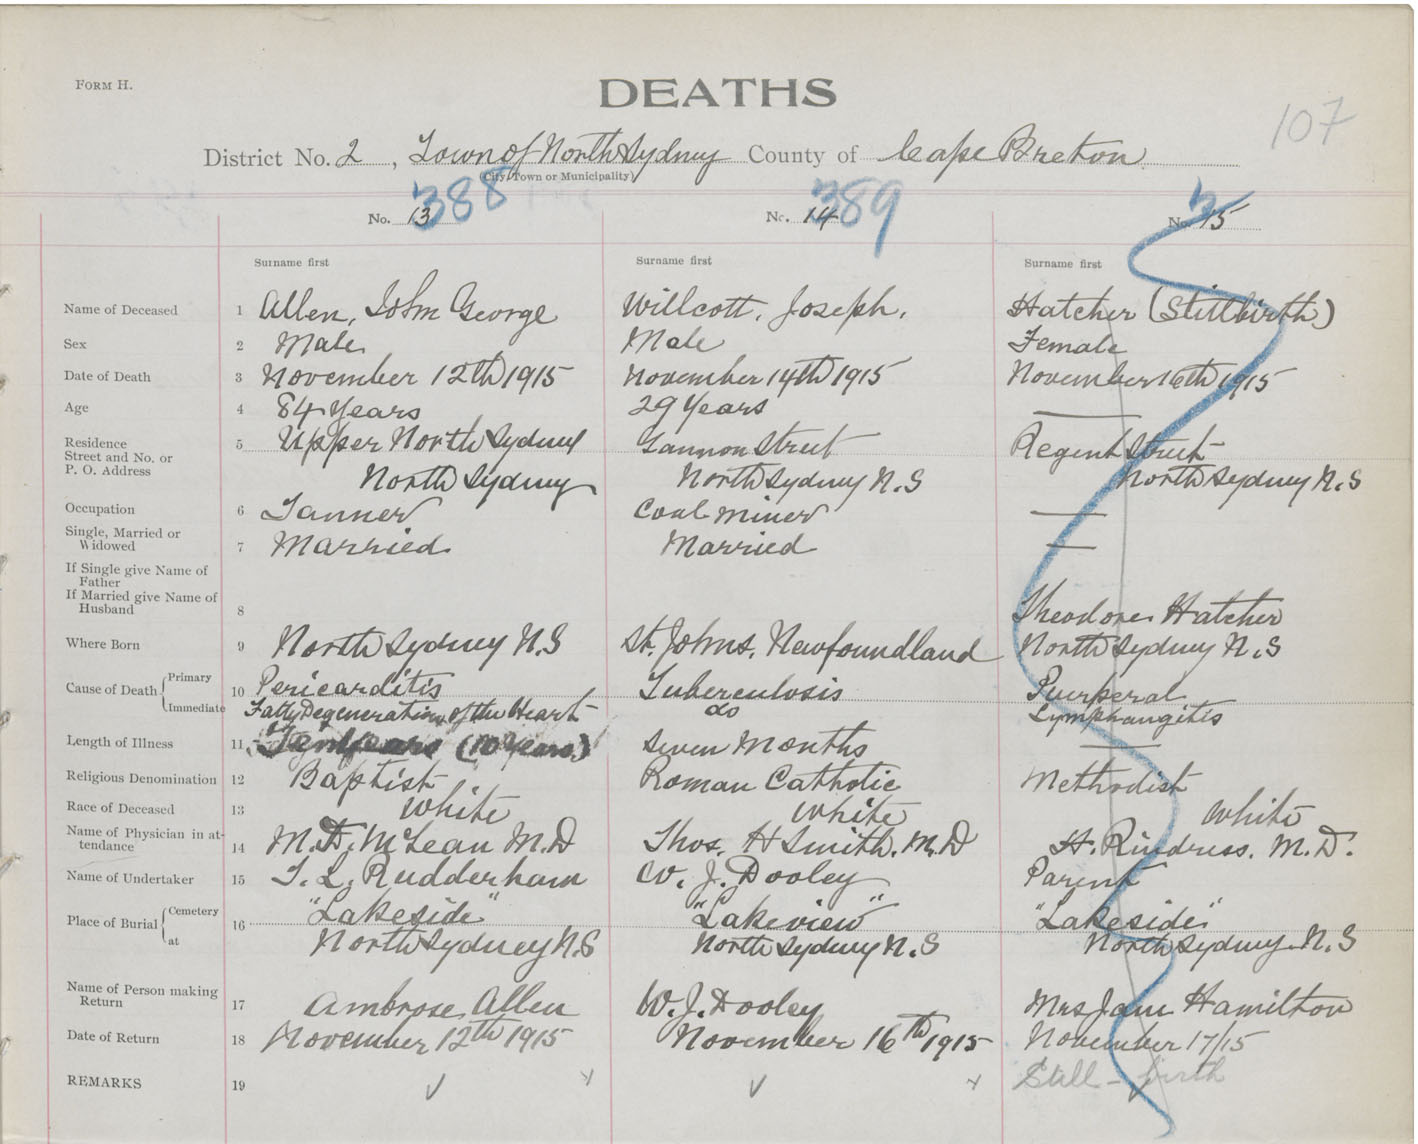 FORM H.
DEATHS
107
District No. 2, Town of North Sydney County of Cape Breton
(City, Town or Municipality)
No. 13 388
No. 14 389
No. 15
Surname first Surname first Surname first
Name of Deceased 1 Allen, John George Willcott, Joseph. Hatcher (Stillbirth)
Sex 2 Male Male Female
Date of Death 3 November 12th 1915 November 14th 1915 November 16th 1915
Age 4 84 Years 29 Years —
Residence
Street and No. or
P. O. Address
5 Upper North Sydney Gannon Street Regent Street
North Sydney North Sydney N.S North Sydney N.S
Occupation 6 Tanner Coal Miner —
Single, Married or
Widowed
7 Married Married —
If Single give Name of
Father
If Married give Name of
Husband
8 Theodore Hatcher
Where Born 9 North Sydney N.S St. Johns, Newfoundland North Sydney N.S
Cause of Death { Primary
Immediate
10 Pericarditis Tuberculosis Puerperal
Fatty Degeneration of the Heart do Lymphangitis
Length of Illness 11 Ten Years (10 Years) Seven Months —
Religious Denomination 12 Baptist Roman Catholic Methodist
Race of Deceased 13 White White White
Name of Physician in at-
tendance
14 M.D. McLean M.D Thos. H Smith. M.D H. Rindress. M.D.
Name of Undertaker 15 T. L. Rudderham W. J. Dooley Parent
Place of Burial { Cemetery
at
16 "Lakeside" "Lakeview" "Lakeside"
North Sydney N.S North Sydney N.S North Sydney N.S
Name of Person making
Return
17 Ambrose Allen W. J. Dooley Mrs Jam Hamilton
Date of Return 18 November 12th 1915 November 16th 1915 November 17/15
REMARKS 19 Still-birth